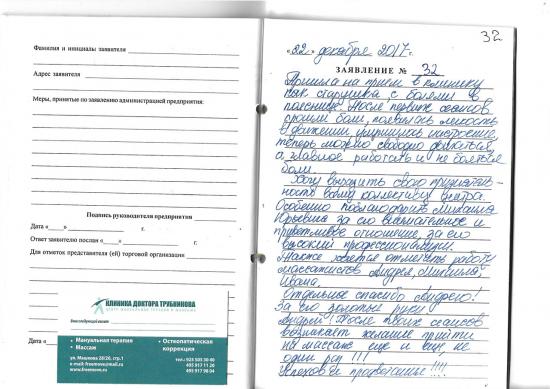 Фамилия и инициалы заявителя
Адрес заявителя
Меры, принятые по заявлению администрацией предприятия:
Подпись руководителя предприятия
Дата « » г.
Ответ заявителю послан « » г.
Для отметок представителя (ей) торговой организации
КЛИНИКА ДОКТОРА ТРУБНИКОВА
ЦЕНТР МАНУАЛЬНОЙ ТЕРАПИИ И МАССАЖА
Мануальная терапия
Массаж
Остеопатическая коррекция
ул. Машкова 28/20, стр.1
Дата «
32
«22» декабря 2017 г.
ЗАЯВЛЕНИЕ № 32
Пришла на прием в клинику
как старушка, с болями в
пояснице. После первых сеансов
прошли боли, появилась легкость
в движении, улучшилось настроение,
теперь можно свободно двигаться,
а главное работать и не бояться
боли.
Хочу выразить свою признатель-
ность всему коллективу центра.
Особенно поблагодарить Михаила
Юрьевича за его внимательное и
приветливое отношение, за его
высокий профессионализм.
Также хочется отметить работу
массажистов Андрея, Михаила,
Ивана.
Отдельное спасибо Андрею!
За его золотые руки
Андрей, После твоих сеансов
возникает желание прийти
на массаж еще и еще, не
один раз !!!
Успехов и процветания!!!!